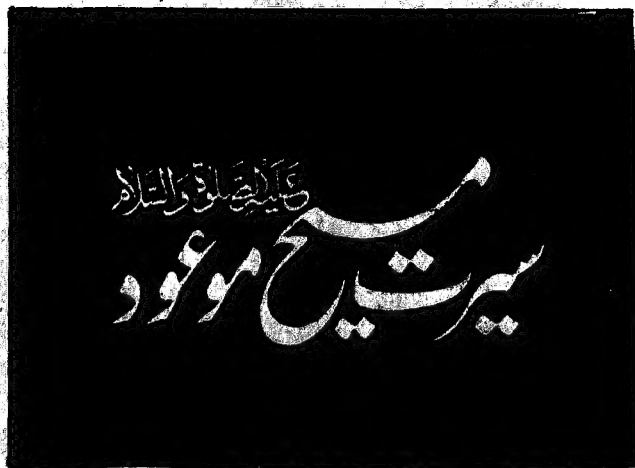 سیرت مسیح موعود
عَلَیْہِ الصَّلٰوۃُ وَالسَّلَام